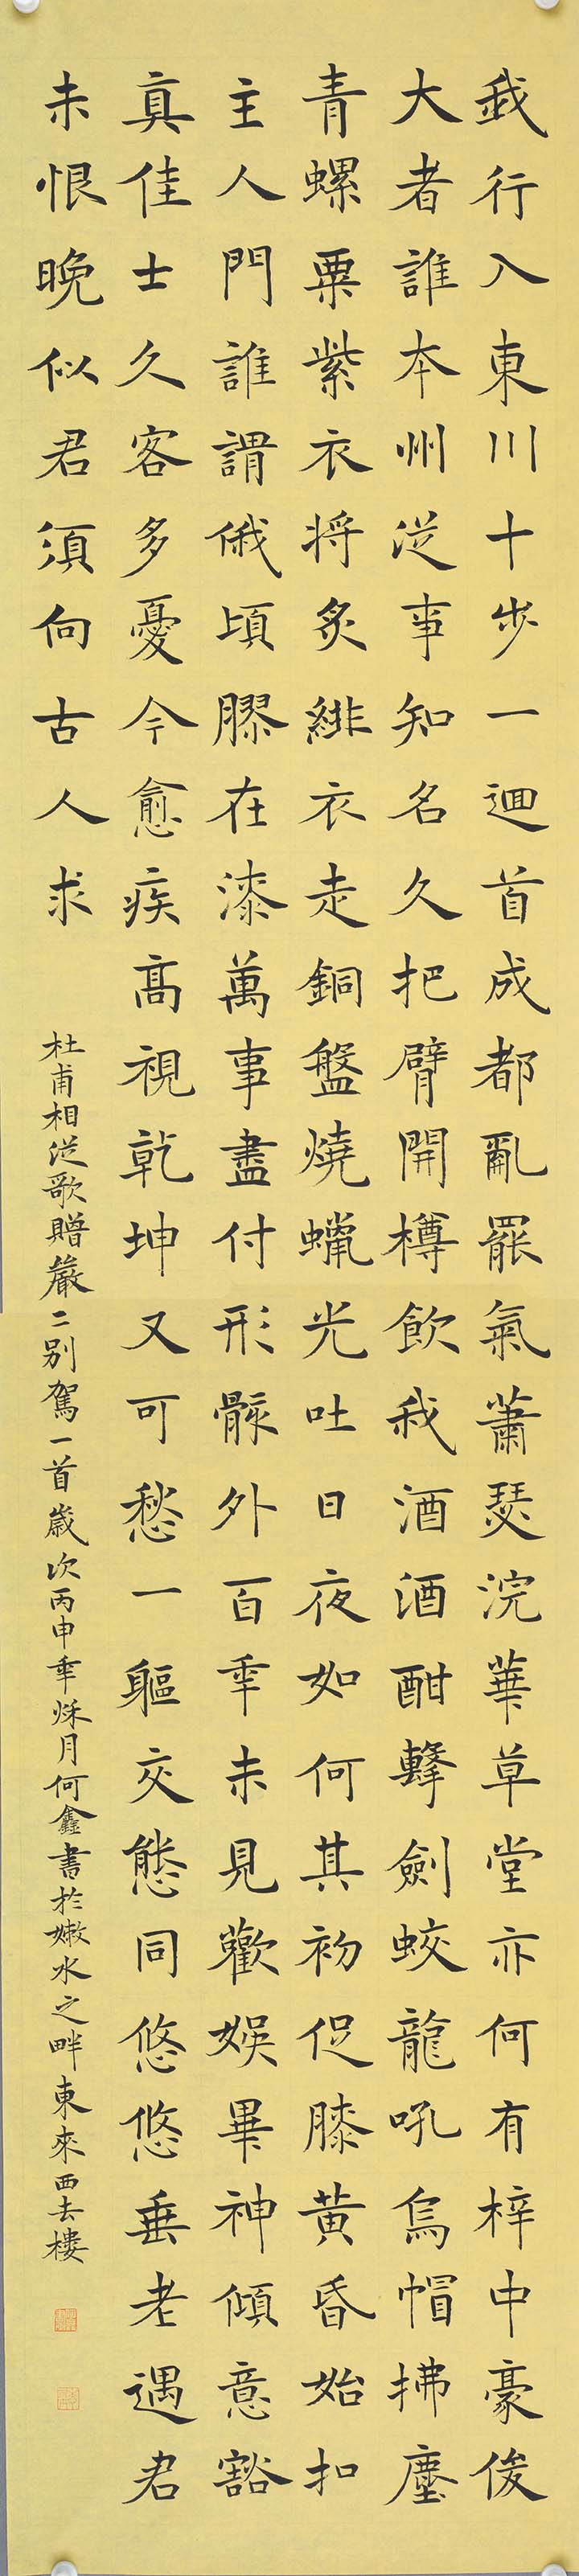 我行入東川十步一迴首成都亂罷氣蕭瑟浣華草堂亦何有梓中豪俊
大者誰本州從事知名久把臂開樽飲我酒酒酣擊劍蛟龍吼烏帽拂塵
青螺粟紫衣將炙緋衣走銅盤燒蠟光吐日夜如何其初促膝黃昏始扣
主人門誰謂俄頃膠在漆萬事盡付形骸外百年未見歡娛畢神傾意豁
真佳士久客多憂今愈疾高視乾坤又可愁一軀交態同悠悠垂老遇君
未恨晚似君須向古人求
杜甫相從歌贈嚴二別駕一首歲次丙申年秌月何鑫書於嫩水之畔東來西去樓